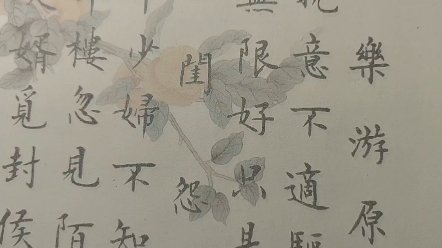 樂游原
意不適驅
無限好只是
閨怨
少婦不知
樓忽見陌
婿覓封侯